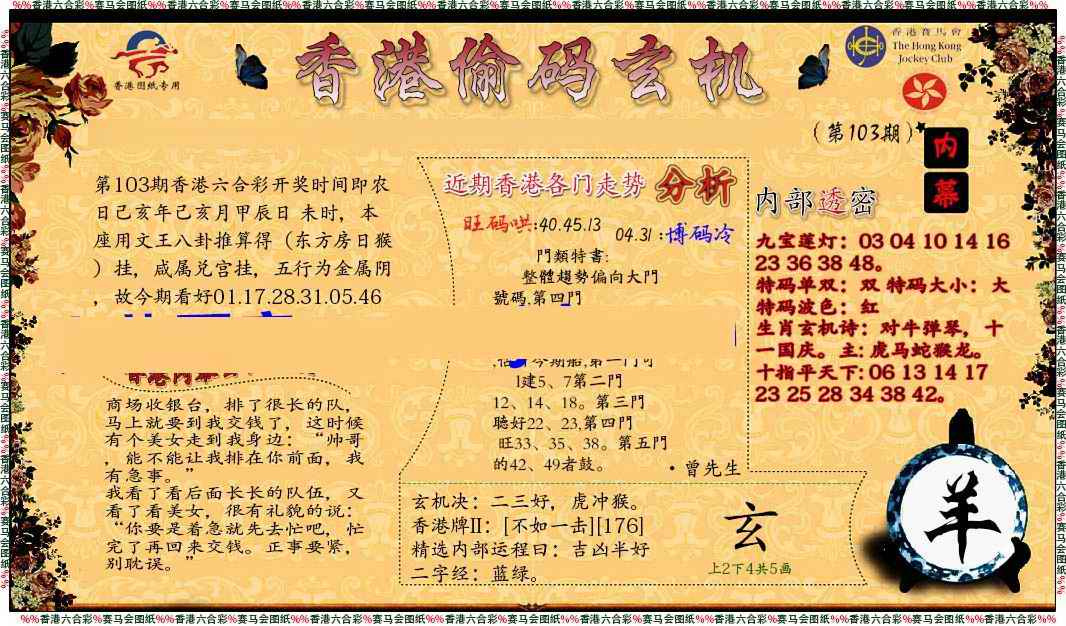 %%香港六合彩%赛马会图纸%%香港六合彩%赛马会图纸%%香港六合彩%赛马会图纸%%香港六合彩%赛马会图纸%%香港六合彩%赛马会图纸%%香港六合彩%赛马会图纸%%
香港图纸专用
香港偷码玄机
香港賽馬會
The Hong Kong
Jockey Club
(第103期)
内幕
第103期香港六合彩开奖时间即农
日己亥年己亥月甲辰日 未时，本
座用文王八卦推算得（东方房日猴
）挂，咸属兑宫挂，五行为金属阴
，故今期看好01.17.28.31.05.46
商场收银台，排了很长的队，
马上就要到我交钱了，这时候
有个美女走到我身边：“帅哥
，能不能让我排在你前面，我
有急事。”
我看了看后面长长的队伍，又
看了看美女，很有礼貌的说：
“你要是着急就先去忙吧，忙
完了再回来交钱。正事要紧，
别耽误。”
近期香港各门走势 分析
旺码哄:40.45.13
04.31:博码冷
門類特書:
整體趨勢偏向大門
號碼,第四門
1建5、7第二門
12、14、18。第三門
聽好22、23,第四門
旺33、35、38。第五門
的42、49者鼓。
·曾先生
玄机决：二三好，虎冲猴。
香港牌II：[不如一击][176]
精选内部运程曰：吉凶半好
二字经：蓝绿。
玄
上2下4共5画
内部透密
九宝莲灯：03 04 10 14 16
23 36 38 48。
特码单双：双 特码大小：大
特码波色：红
生肖玄机诗：对牛弹琴，十
一国庆。主: 虎马蛇猴龙。
十指平天下: 06 13 14 17
23 25 28 34 38 42。
羊